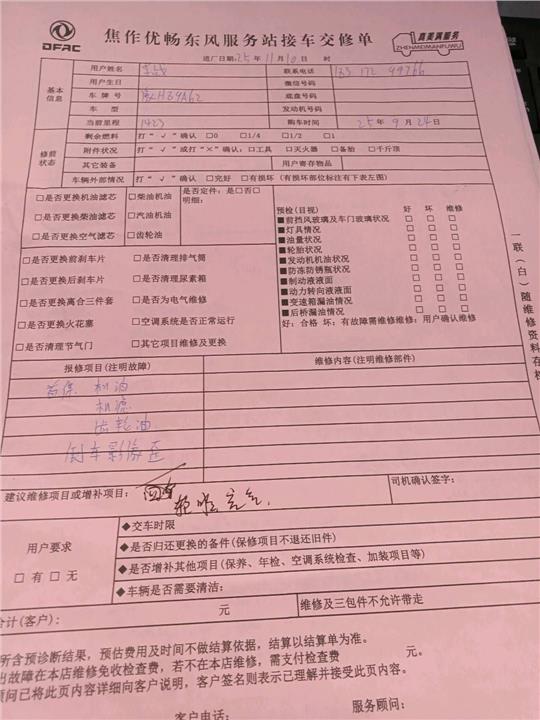 DFAC
焦作优畅东风服务站接车交修单
真美满服务
ZHENMEIMANFUWU
进厂日期:25年11月10日 时
基本信息
用户姓名 联系电话
用户生日 微信号码
车牌号 底盘号码
车型 发动机号码
当前里程 1423 购车时间 25年9月24日
修前状态
剩余燃料 打“√”确认 □0 □1/4 □1/2 □1
附件状况 打“√”或打“×”确认:□工具 □灭火器 □备胎 □千斤顶
其它装备 用户寄存物品
车辆外部情况 打“√”确认 □完好 □有损坏 (有损坏部位标注有下表左图)
□是否更换机油滤芯 □柴油机油 是否定件:是□否□
明细:
□是否更换柴油滤芯 □汽油机油
□是否更换空气滤芯 □齿轮油
□是否更换前刹车片 □是否清理排气筒
□是否更换后刹车片 □是否清理尿素箱
□是否更换离合三件套 □是否为电气维修
□是否更换火花塞 □空调系统是否正常运行
□是否清理节气门 □其它项目维修及更换
预检(目视) 好 坏 维修
■前挡风玻璃及车门玻璃状况 □ □ □
■灯具情况 □ □ □
■油量状况 □ □ □
■轮胎状况 □ □ □
■发动机机油状况 □ □ □
■防冻防锈瓶状况 □ □ □
■制动液液面 □ □ □
■动力转向液液面 □ □ □
■变速箱漏油情况 □ □ □
■后桥漏油情况 □ □ □
好:合格 坏:有故障需维修维修:用户确认维修
一联(白)随维修资料存档
报修项目(注明故障) 维修内容(注明维修部件)
首保 机油
机滤
齿轮油
倒车影像歪
建议维修项目或增补项目: 司机确认签字:
用户要求
□有□无
◆交车时限
◆是否归还更换的备件(保修项目不退还旧件)
◆是否增补其他项目(保养、年检、空调系统检查、加装项目等)
◆车辆是否需要清洁:
合计(客户): 元 维修及三包件不允许带走
所含预诊断结果,预估费用及时间不做结算依据,结算以结算单为准。
出故障在本店维修免收检查费,若不在本店维修,需支付检查费 元。
顾问已将此页内容详细向客户说明,客户签名则表示已理解并接受此页内容。
客户电话: 服务顾问: